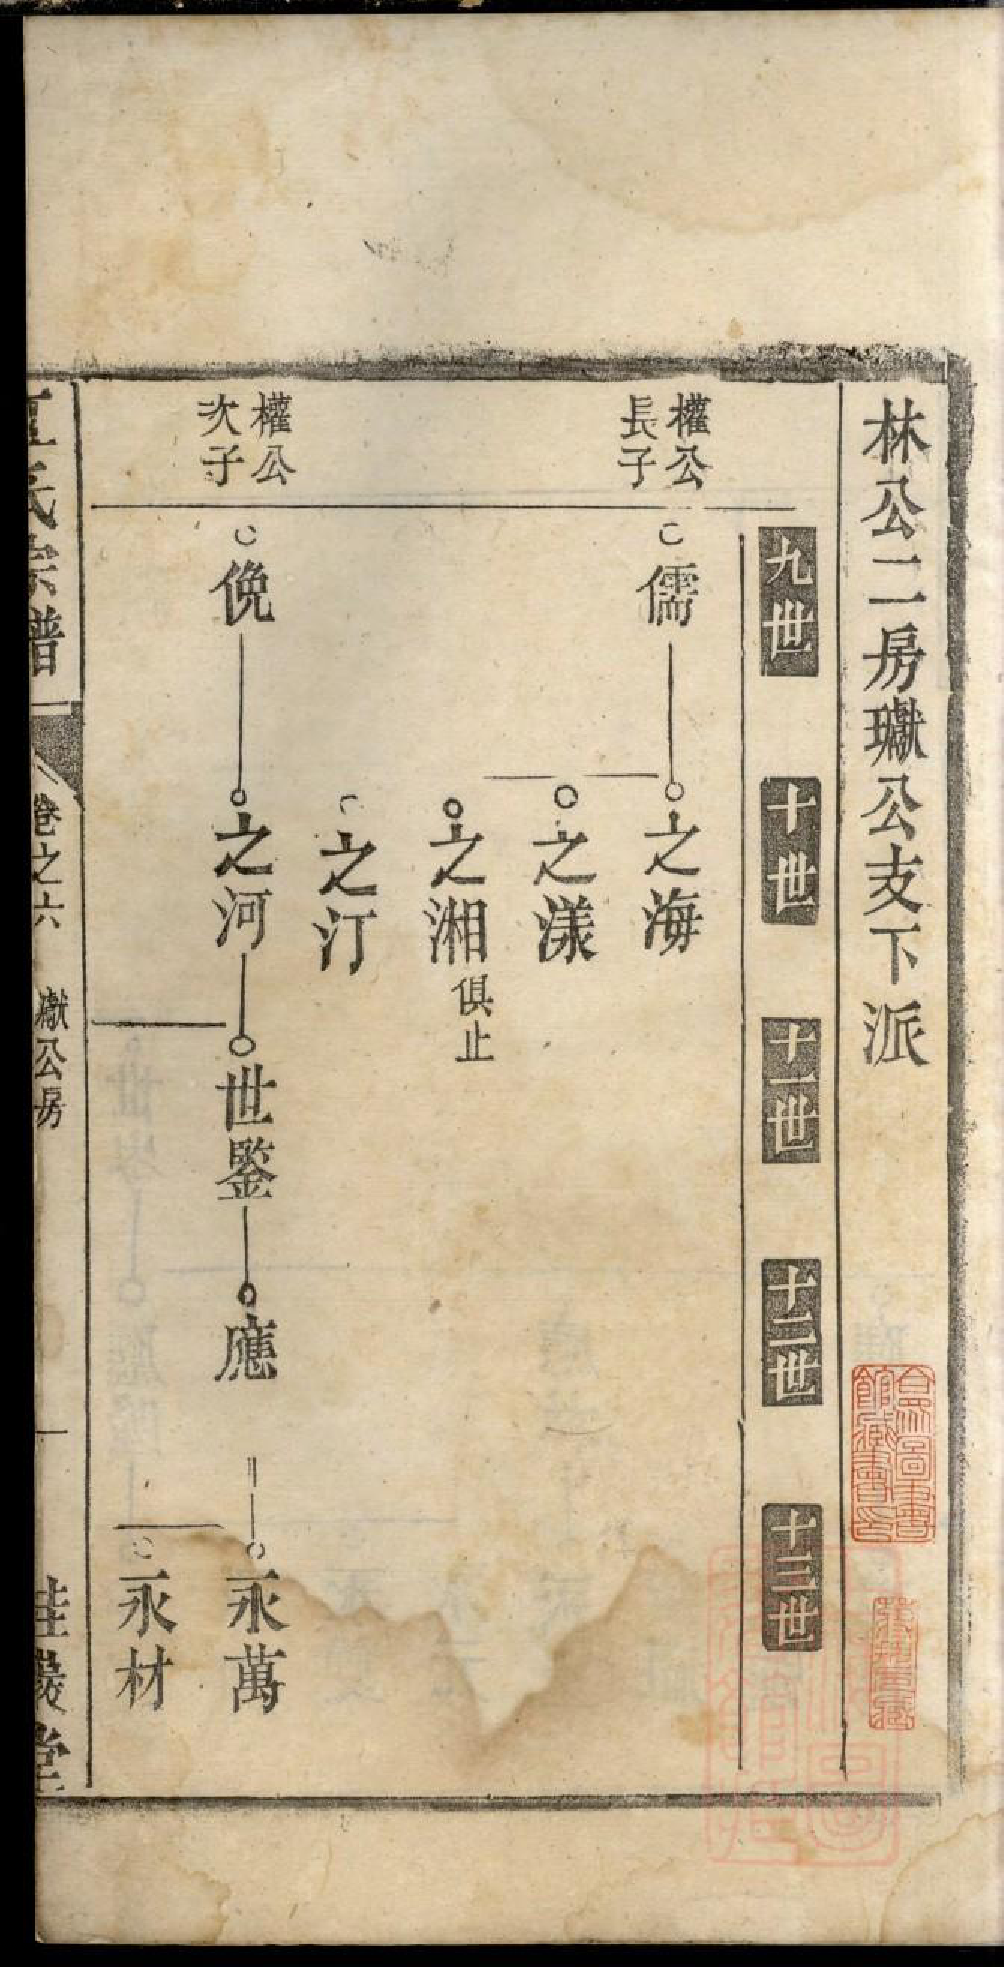 林公二房瓛公支下派
九世
十世
十一世
十二世
十三世
權公
長子
儒
之海
之漾
之湘
俱止
之汀
權公
次子
俛
之河
世鋻
應
永萬
永材
氏宗譜
卷之六
瓛公房
一
桂巖堂